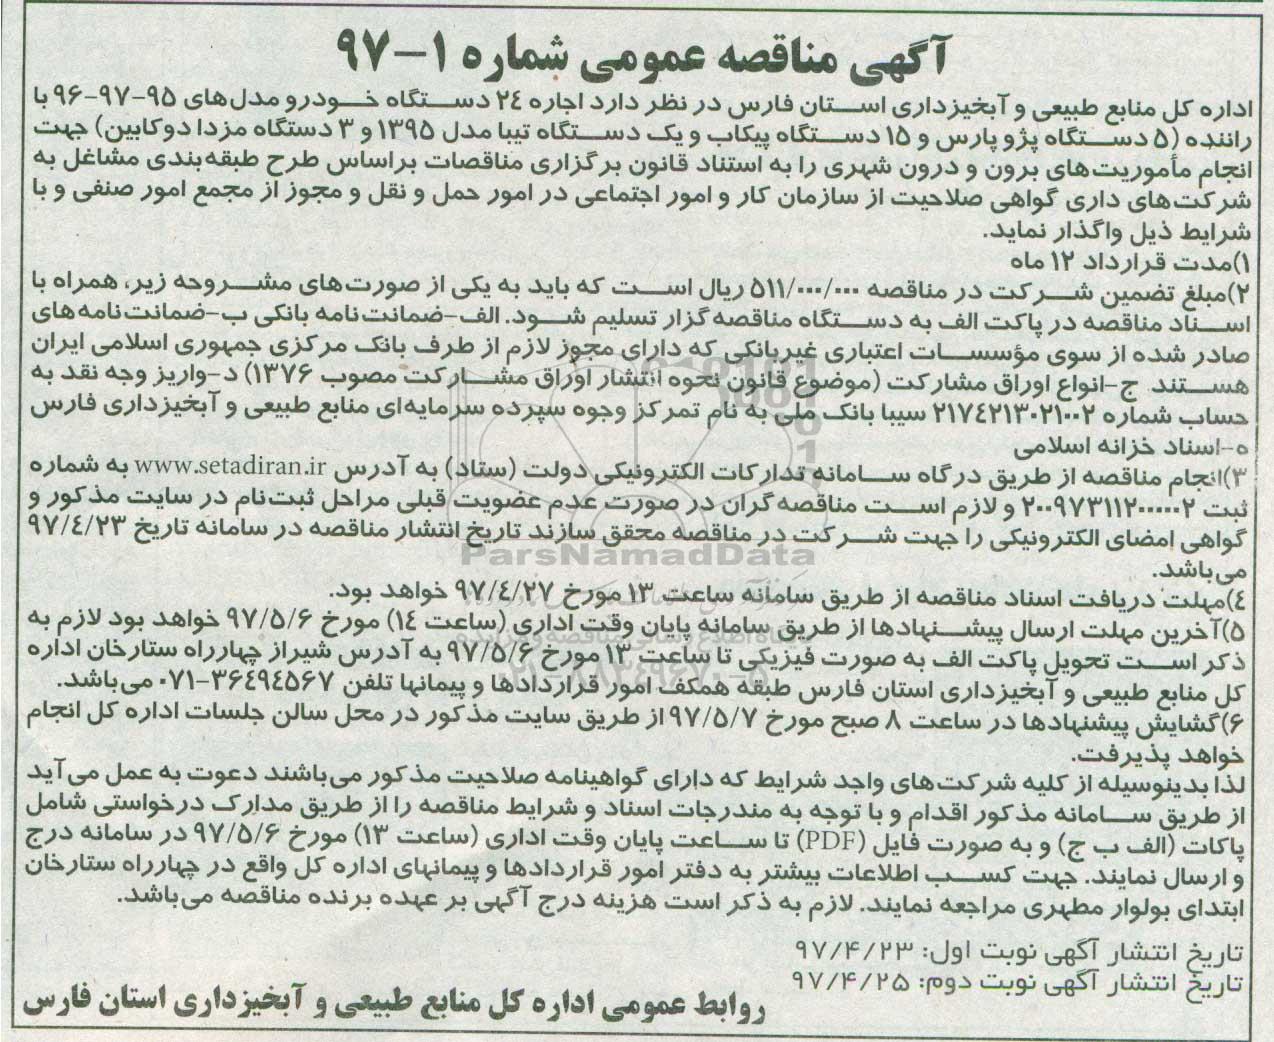 آگهی مناقصه عمومی شماره ۱-۹۷
اداره کل منابع طبیعی و آبخیزداری استان فارس در نظر دارد اجاره ۲۴ دستگاه خودرو مدل‌های ۹۵-۹۷-۹۶ با
راننده (۵ دستگاه پژو پارس و ۱۵ دستگاه پیکاب و یک دستگاه تیبا مدل ۱۳۹۵ و ۳ دستگاه مزدا دوکابین) جهت
انجام مأموریت‌های برون و درون شهری را به استناد قانون برگزاری مناقصات براساس طرح طبقه‌بندی مشاغل به
شرکت‌های داری گواهی صلاحیت از سازمان کار و امور اجتماعی در امور حمل و نقل و مجوز از مجمع امور صنفی و با
شرایط ذیل واگذار نماید.
۱)مدت قرارداد ۱۲ ماه
۲)مبلغ تضمین شرکت در مناقصه ۵۱۱/۰۰۰/۰۰۰ ریال است که باید به یکی از صورت‌های مشروحه زیر، همراه با
اسناد مناقصه در پاکت الف به دستگاه مناقصه‌گزار تسلیم شود. الف-ضمانت‌نامه بانکی ب-ضمانت‌نامه‌های
صادر شده از سوی مؤسسات اعتباری غیربانکی که دارای مجوز لازم از طرف بانک مرکزی جمهوری اسلامی ایران
هستند ج-انواع اوراق مشارکت (موضوع قانون نحوه انتشار اوراق مشارکت مصوب ۱۳۷۶) د-واریز وجه نقد به
حساب شماره ۲۱۷۴۲۱۳۰۲۱۰۰۲ سیبا بانک ملی به نام تمرکز وجوه سپرده سرمایه‌ای منابع طبیعی و آبخیزداری فارس
ه-اسناد خزانه اسلامی
۳)انجام مناقصه از طریق درگاه سامانه تدارکات الکترونیکی دولت (ستاد) به آدرس www.setadiran.ir به شماره
ثبت ۲۰۰۹۷۳۱۱۲۰۰۰۰۰۲ و لازم است مناقصه‌گران در صورت عدم عضویت قبلی مراحل ثبت‌نام در سایت مذکور و
گواهی امضای الکترونیکی را جهت شرکت در مناقصه محقق سازند تاریخ انتشار مناقصه در سامانه تاریخ ۹۷/۴/۲۳
می‌باشد.
ParsNamadData
۴)مهلت دریافت اسناد مناقصه از طریق سامانه ساعت ۱۳ مورخ ۹۷/۴/۲۷ خواهد بود.
۵)آخرین مهلت ارسال پیشنهادها از طریق سامانه پایان وقت اداری (ساعت ۱۴) مورخ ۹۷/۵/۶ خواهد بود لازم به
ذکر است تحویل پاکت الف به صورت فیزیکی تا ساعت ۱۳ مورخ ۹۷/۵/۶ به آدرس شیراز چهارراه ستارخان اداره
کل منابع طبیعی و آبخیزداری استان فارس طبقه همکف امور قراردادها و پیمانها تلفن ۳۶۴۹۴۵۶۷-۰۷۱ می‌باشد.
۶)گشایش پیشنهادها در ساعت ۸ صبح مورخ ۹۷/۵/۷ از طریق سایت مذکور در محل سالن جلسات اداره کل انجام
خواهد پذیرفت.
لذا بدینوسیله از کلیه شرکت‌های واجد شرایط که دارای گواهینامه صلاحیت مذکور می‌باشند دعوت به عمل می‌آید
از طریق سامانه مذکور اقدام و با توجه به مندرجات اسناد و شرایط مناقصه را از طریق مدارک درخواستی شامل
پاکات (الف ب ج) و به صورت فایل (PDF) تا ساعت پایان وقت اداری (ساعت ۱۳) مورخ ۹۷/۵/۶ در سامانه درج
و ارسال نمایند. جهت کسب اطلاعات بیشتر به دفتر امور قراردادها و پیمانهای اداره کل واقع در چهارراه ستارخان
ابتدای بولوار مطهری مراجعه نمایند. لازم به ذکر است هزینه درج آگهی بر عهده برنده مناقصه می‌باشد.
تاریخ انتشار آگهی نوبت اول: ۹۷/۴/۲۳
تاریخ انتشار آگهی نوبت دوم: ۹۷/۴/۲۵
روابط عمومی اداره کل منابع طبیعی و آبخیزداری استان فارس